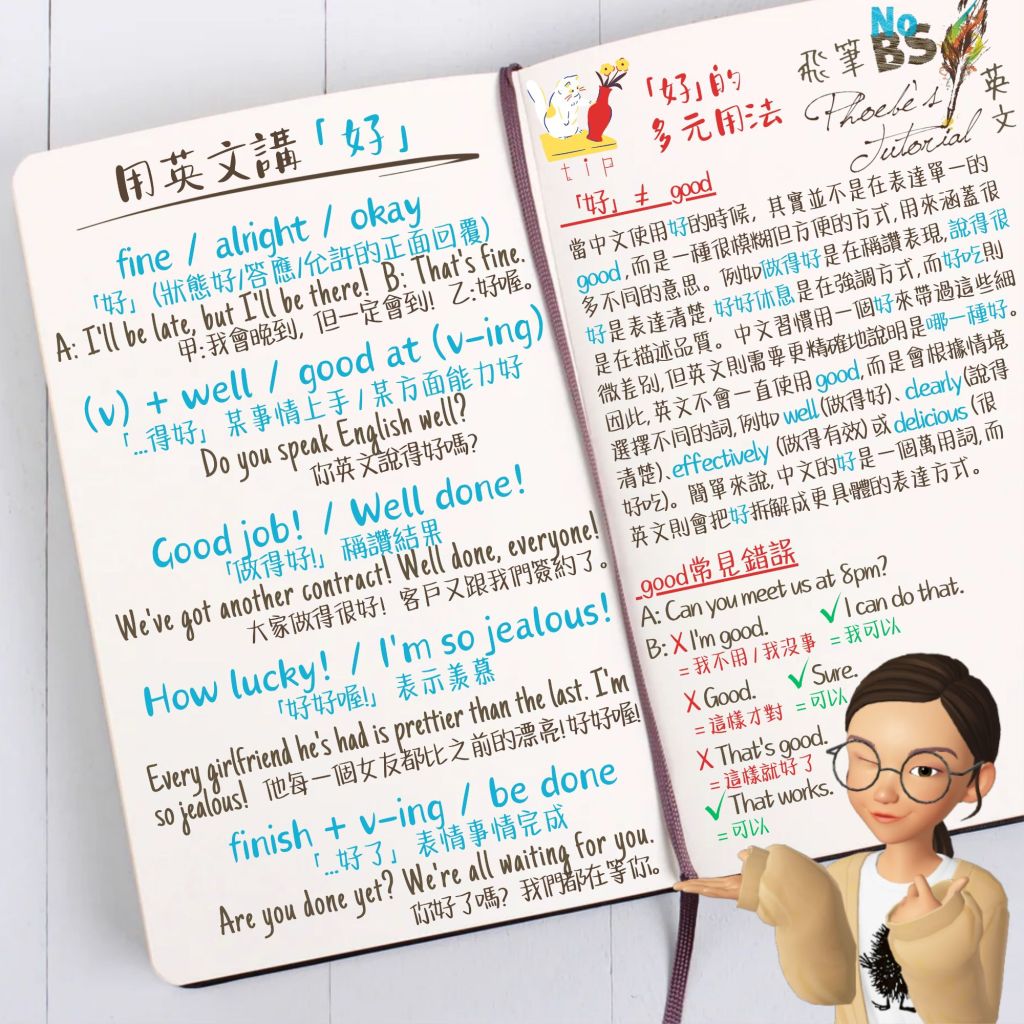 用英文講「好」
fine / alright / okay
「好」(狀態好/答應/允許的正面回覆)
A: I'll be late, but I'll be there! B: That's fine.
甲:我會晚到, 但一定會到! 乙:好喔。
(v) + well / good at (v-ing)
「...得好」某事情上手/某方面能力好
Do you speak English well?
你英文說得好嗎?
Good job! / Well done!
「做得好!」稱讚結果
We've got another contract! Well done, everyone!
大家做得很好! 客戶又跟我們簽約了。
How lucky! / I'm so jealous!
「好好喔!」表示羨慕
Every girlfriend he's had is prettier than the last. I'm
so jealous! 他每一個女友都比之前的漂亮!好好喔!
finish + v-ing / be done
「...好了」表情事情完成
Are you done yet? We're all waiting for you.
你好了嗎? 我們都在等你。
tip
「好」的
多元用法
飛筆
No
BS
英文
Phoebe's
Tutorial
「好」≠ good
當中文使用好的時候, 其實並不是在表達單一的
good,而是一種很模糊但方便的方式,用來涵蓋很
多不同的意思。例如做得好是在稱讚表現,說得很
好是表達清楚,好好休息是在強調方式,而好吃則
是在描述品質。中文習慣用一個好來帶過這些細
微差別,但英文則需要更精確地說明是哪一種好。
因此,英文不會一直使用good,而是會根據情境
選擇不同的詞,例如 well (做得好)、clearly (說得
清楚)、effectively (做得有效) 或 delicious (很
好吃)。簡單來說,中文的好是一個萬用詞,而
英文則會把好拆解成更具體的表達方式。
good常見錯誤
A: Can you meet us at 8pm?
B: ✗ I'm good. ✓ I can do that.
= 我不用/我沒事 = 我可以
✗ Good. ✓ Sure.
= 這樣才對 = 可以
✗ That's good.
= 這樣就好了
✓ That works.
= 可以